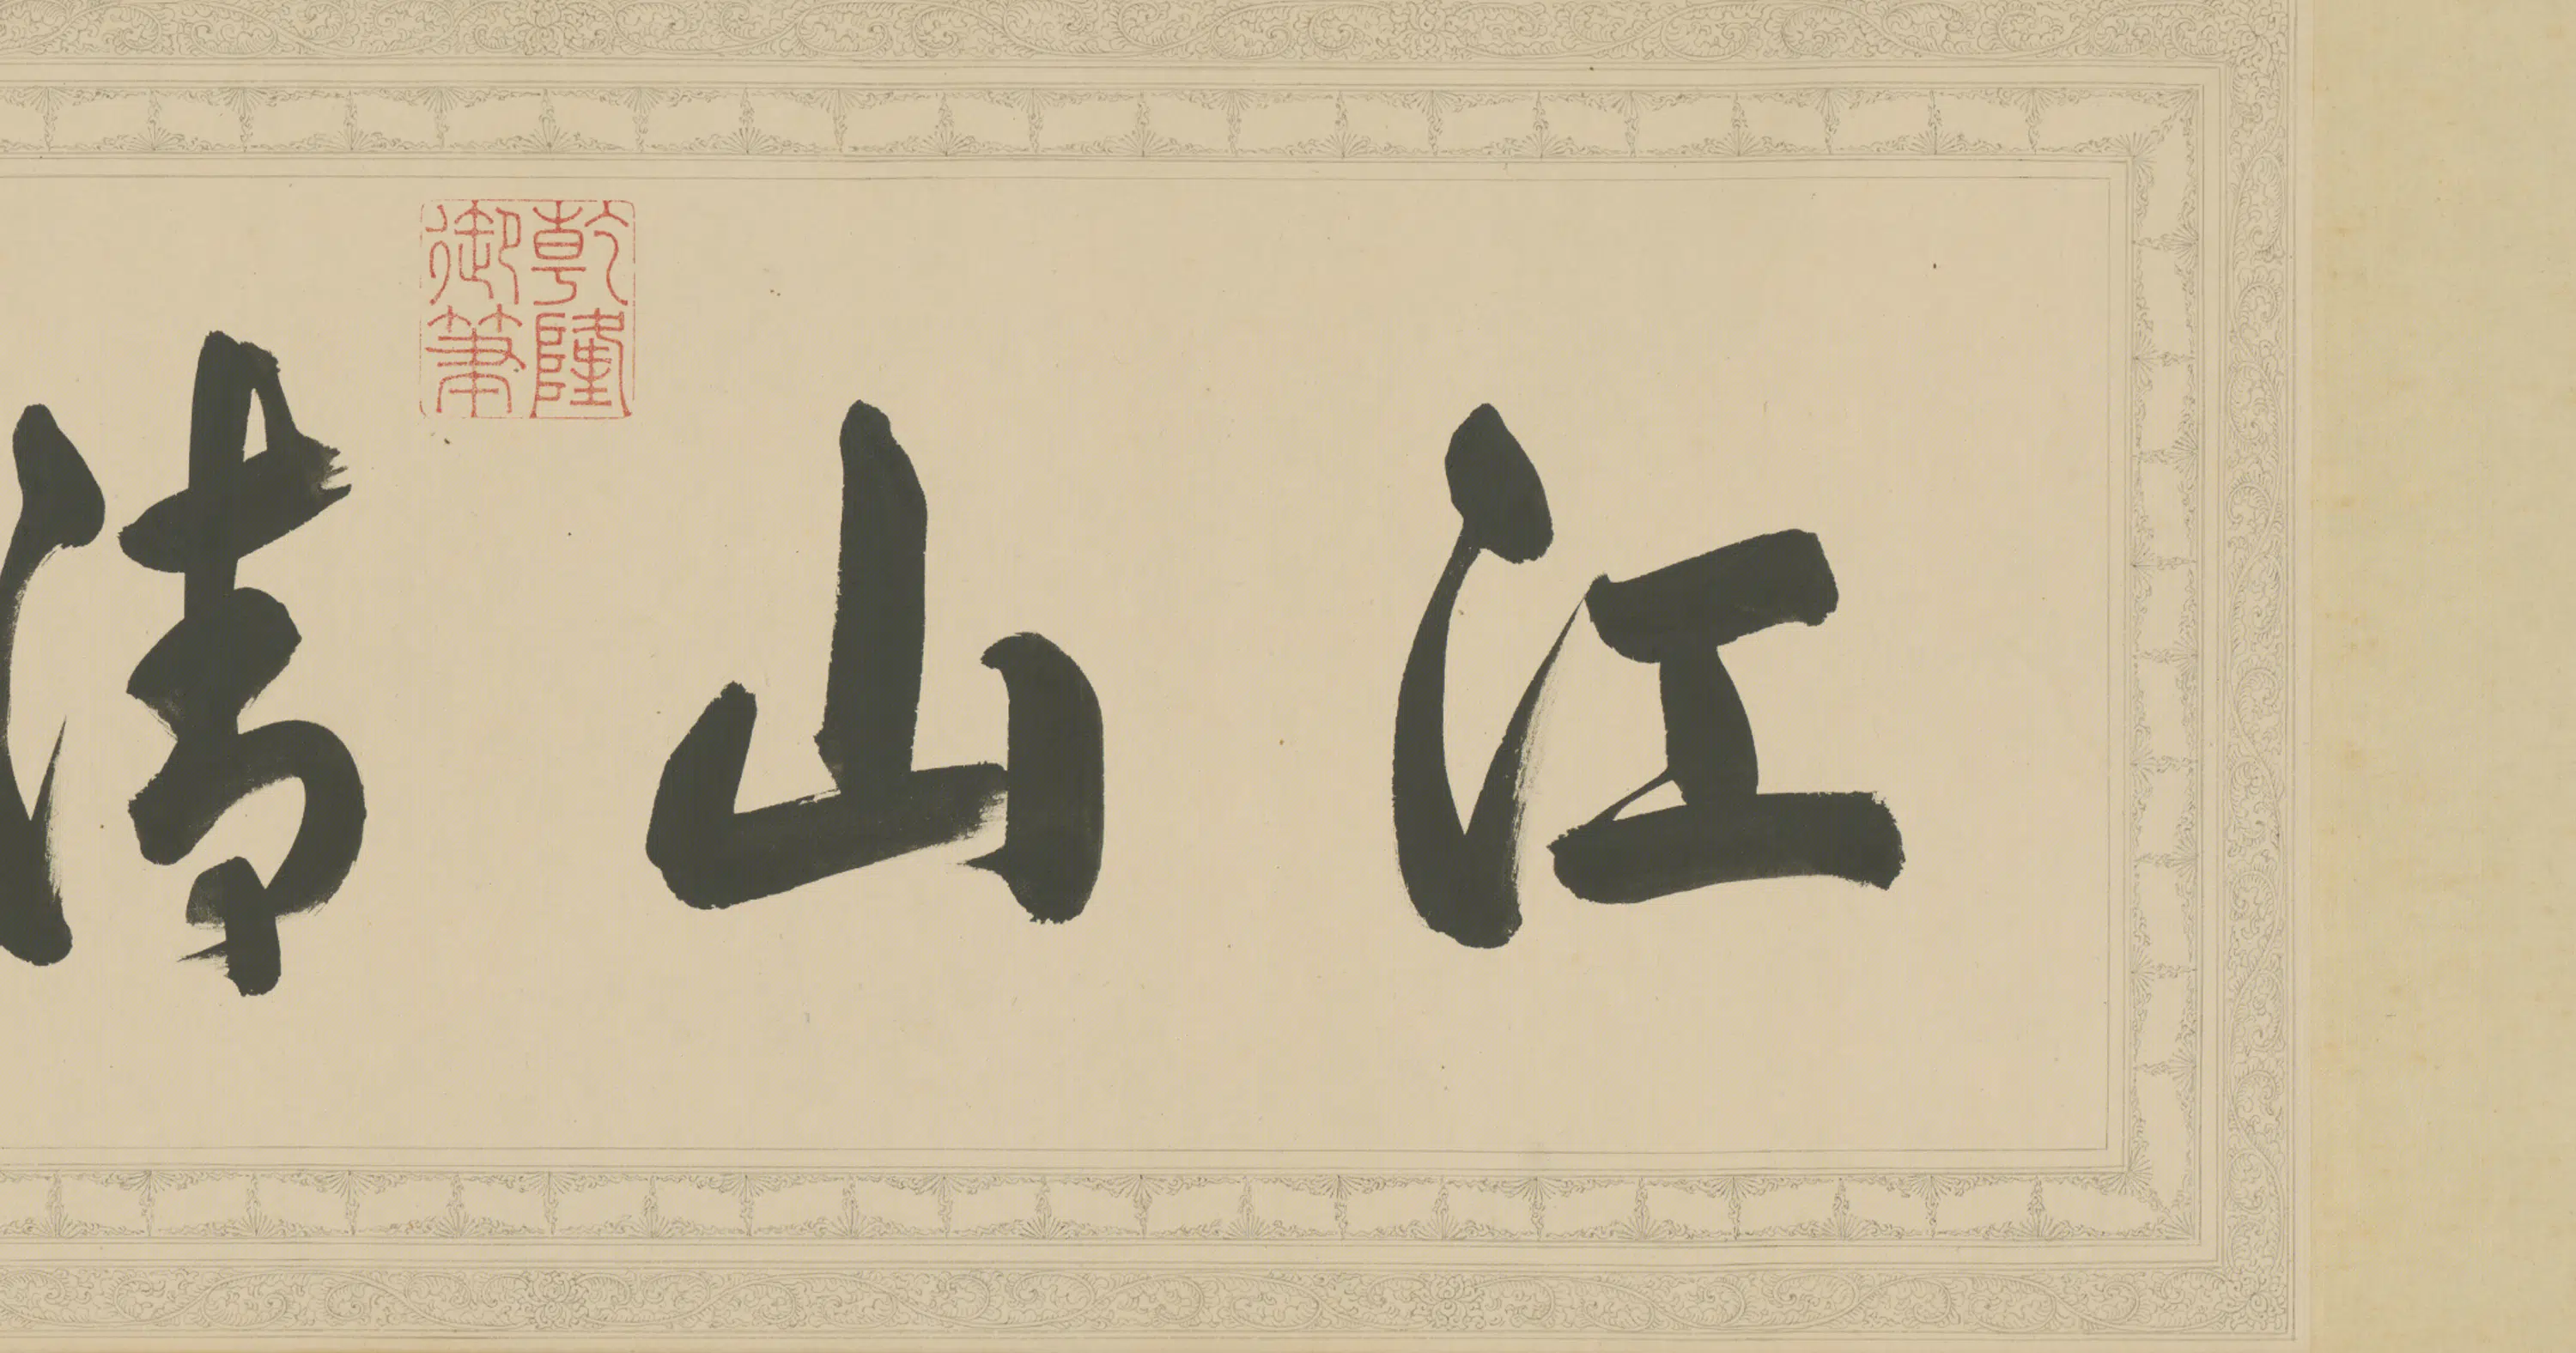 江山清
乾隆御筆